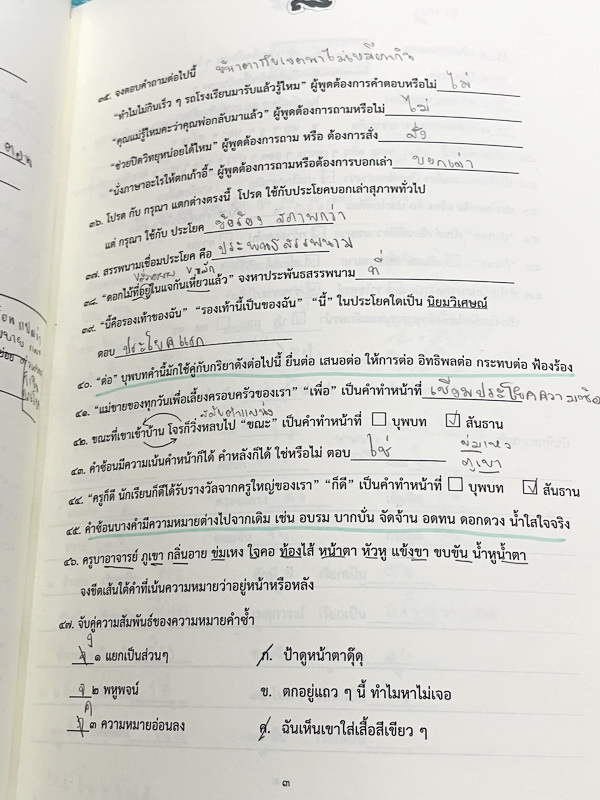 ๓๕. จงตอบคำถามต่อไปนี้
"ทำไมไม่กินเร็ว ๆ รถโรงเรียนมารับแล้วรู้ไหม" ผู้พูดต้องการคำตอบหรือไม่ ไม่
"คุณแม่รู้ไหมคะว่าคุณพ่อกลับมาแล้ว" ผู้พูดต้องการถามหรือไม่ ไม่
"ช่วยปิดวิทยุหน่อยได้ไหม" ผู้พูดต้องการถาม หรือ ต้องการสั่ง สั่ง
"นั่งภาษาอะไรให้ตกเก้าอี้" ผู้พูดต้องการถามหรือต้องการบอกเล่า บอกเล่า
๓๖. โปรด กับ กรุณา แตกต่างตรงนี้ โปรด ใช้กับประโยคบอกเล่าสุภาพทั่วไป
แต่ กรุณา ใช้กับ ประโยค ขอร้อง สุภาพกว่า
๓๗. สรรพนามเชื่อมประโยค คือ ประพันธสรรพนาม
๓๘. "ดอกไม้ที่อยู่ในแจกันเหี่ยวแล้ว" จงหาประพันธสรรพนาม ที่
๓๙. "นี้คือรองเท้าของฉัน" "รองเท้านี้เป็นของฉัน" "นี้" ในประโยคใดเป็น นิยมวิเศษณ์
ตอบ ประโยคแรก
๔๐. "ต่อ" บุพบทคำนี้มักใช้คู่กับกริยาดังต่อไปนี้ ยื่นต่อ เสนอต่อ ให้การต่อ อิทธิพลต่อ กระทบต่อ ฟ้องร้อง
๔๑. "แม่ขายของทุกวันเพื่อเลี้ยงครอบครัวของเรา" "เพื่อ" เป็นคำทำหน้าที่ เชื่อมประโยคความ
๔๒. ขณะที่เขาเข้าบ้าน โจรก็วิ่งหลบไป "ขณะ" เป็นคำทำหน้าที่ บุพบท สันธาน
๔๓. คำซ้อนมีความเน้นคำหน้าก็ได้ คำหลังก็ได้ ใช่หรือไม่ ตอบ ใช่
ข่มเหง
ภูเขา
๔๔. "ครูก็ดี นักเรียนก็ดีได้รับรางวัลจากครูใหญ่ของเรา" "ก็ดี" เป็นคำทำหน้าที่ บุพบท สันธาน
๔๕. คำซ้อนบางคำมีความหมายต่างไปจากเดิม เช่น อบรม บากบั่น จัดจ้าน อดทน ดอกดวง น้ำใสใจจริง
๔๖. ครูบาอาจารย์ ภูเขา กลิ่นอาย ข่มเหง ใจคอ ท้องไส้ หน้าตา หัวหู แข้งขา ขบขัน น้ำหูน้ำตา
จงขีดเส้นใต้คำที่เน้นความหมายว่าอยู่หน้าหรือหลัง
๔๗. จับคู่ความสัมพันธ์ของความหมายคำซ้ำ
๑ แยกเป็นส่วนๆ
ก. ป้าดูหน้าตาดุ๊ดุ
๒ พหูพจน์
ข. ตกอยู่แถว ๆ นี้ ทำไมหาไม่เจอ
๓ ความหมายอ่อนลง
ค. ฉันเห็นเขาใส่เสื้อสีเขียว ๆ
๓